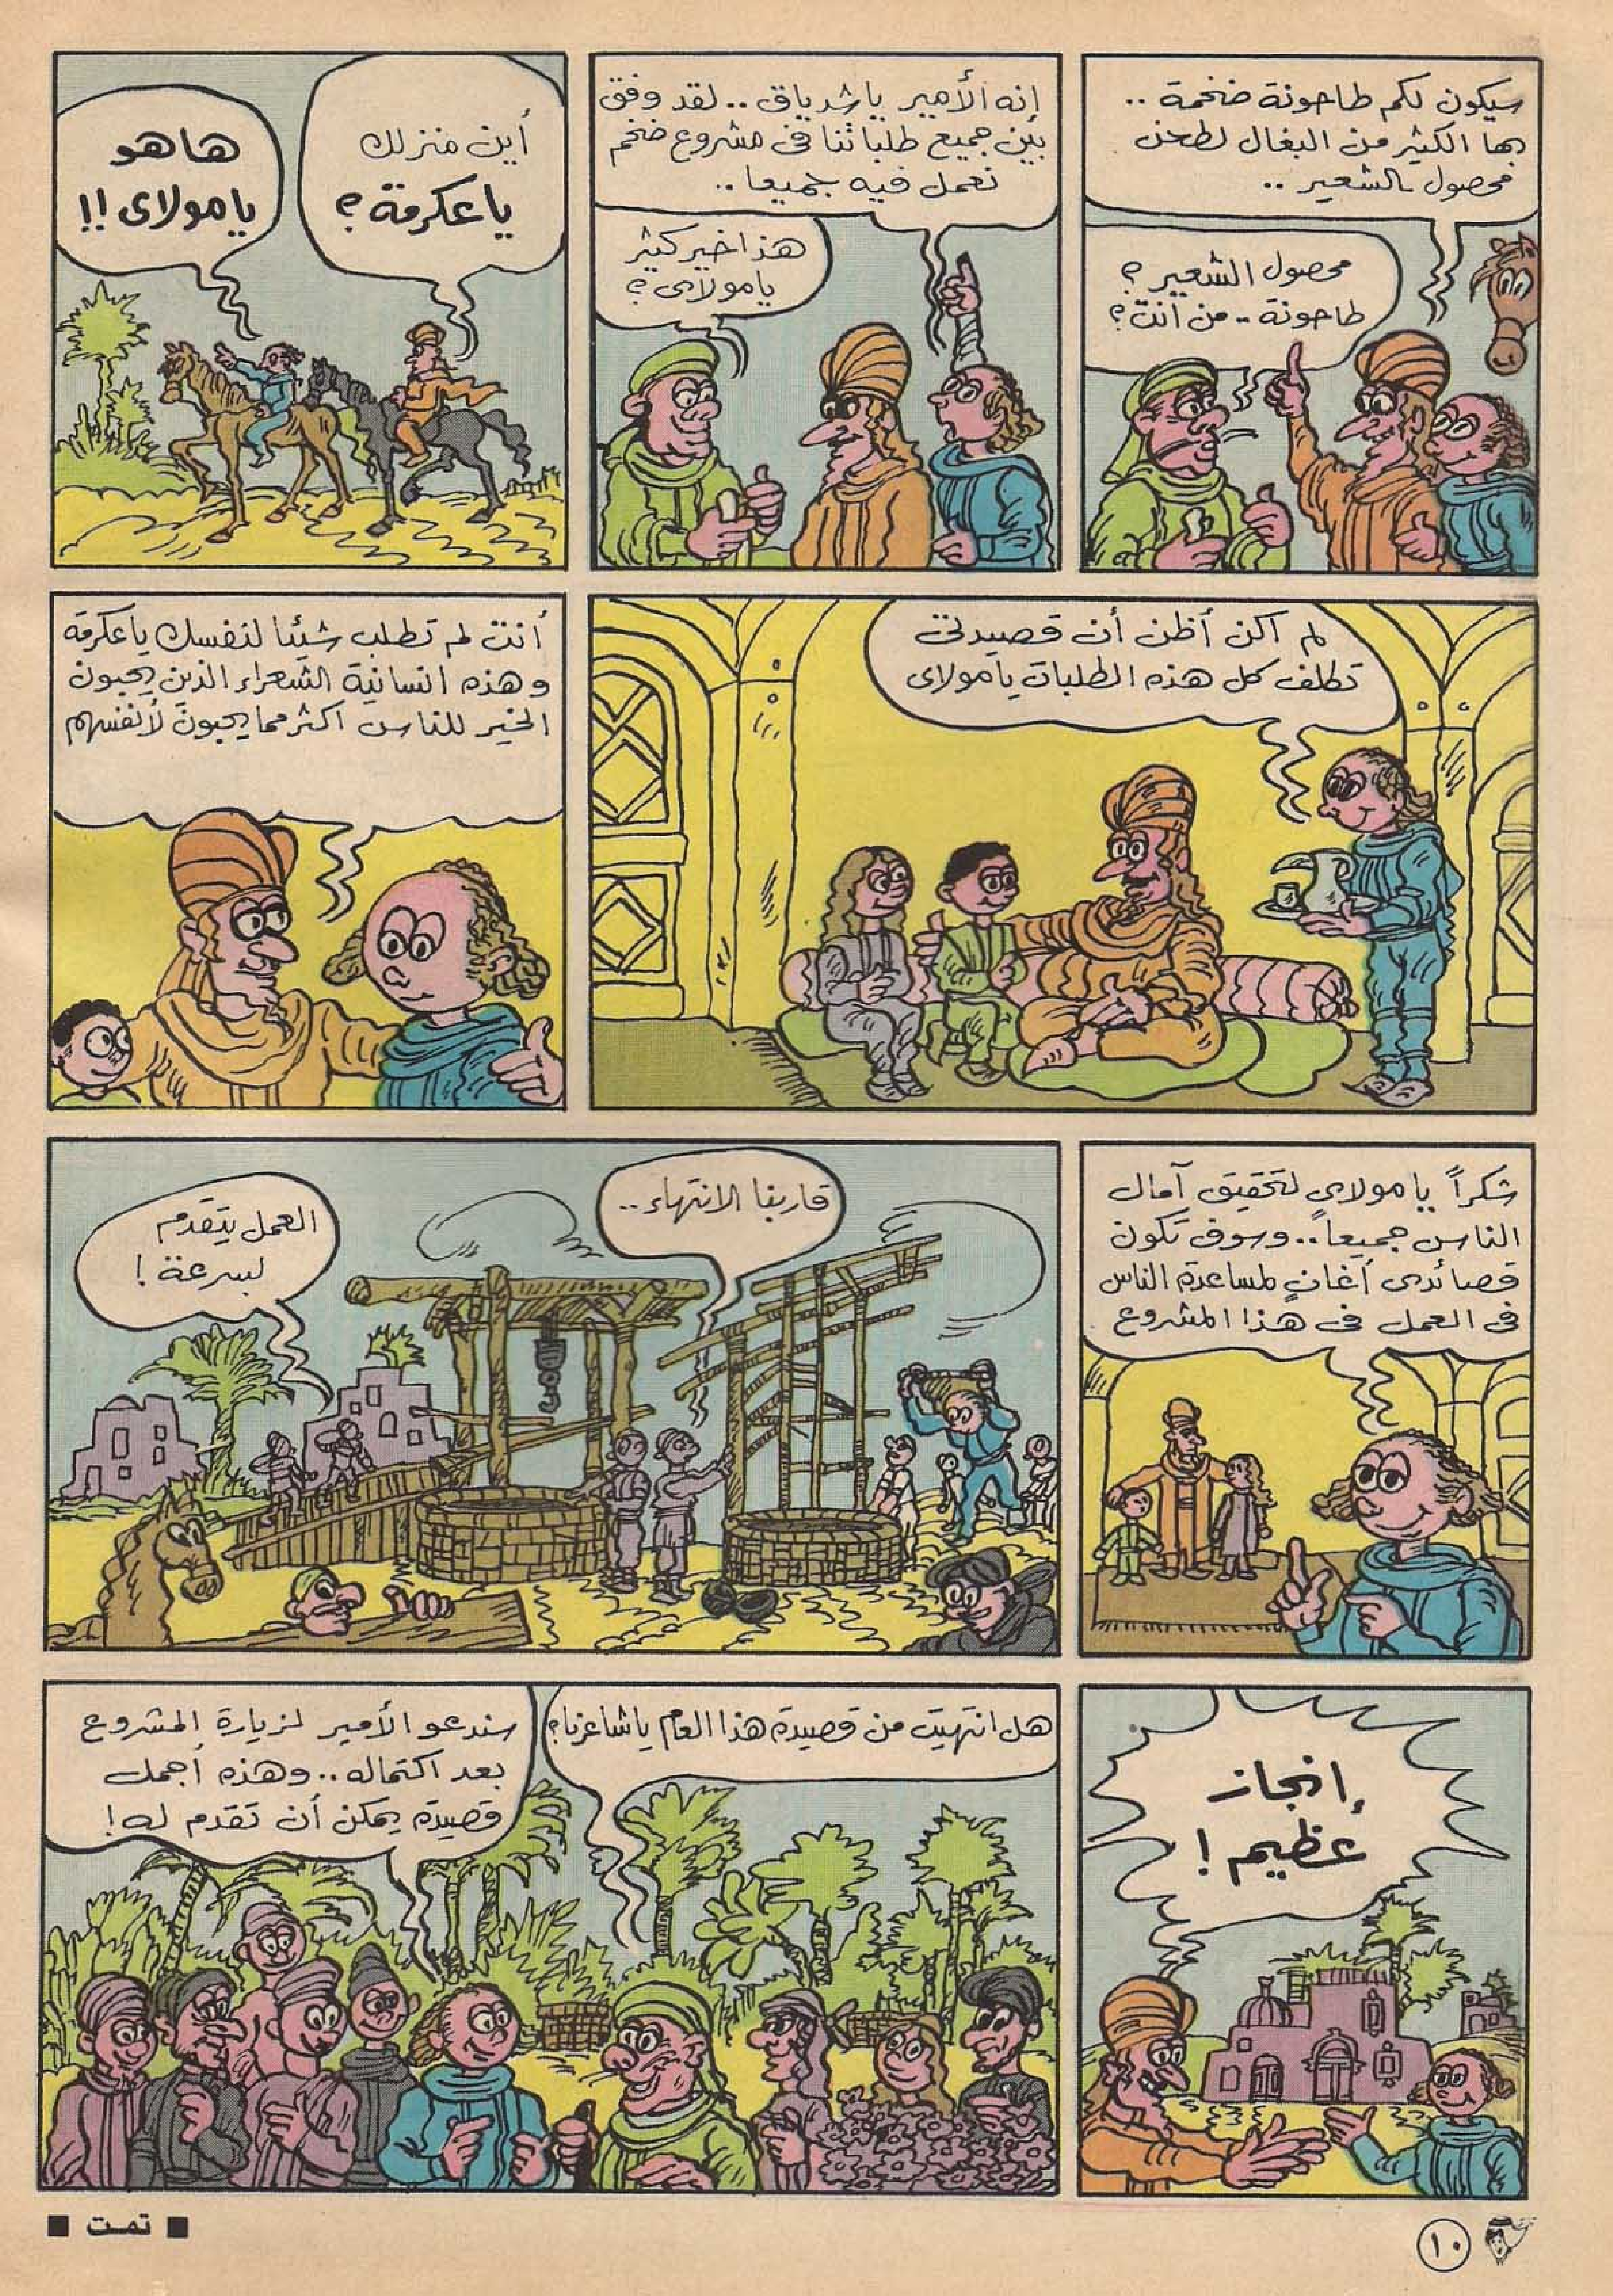 سيكون لكم طاحونة ضخمة ..
بها الكثير من البغال لطحن
محصول الشعير ..
محصول الشعير ؟
طاحونة .. من أنت ؟
إنه الأمير ياشدياق .. لقد وفق
بين جميع طلباتنا فى مشروع ضخم
نعمل فيه جميعا ..
هذا خير كثير
يامولاى ؟
أين منزلك
ياعكرمة ؟
هاهو
يامولاى !!
لم اكن أظن أن قصيدتى
تكلف كل هذه الطلبات يامولاى
أنت لم تطلب شيئا لنفسك ياعكرمة
وهذه انسانية الشعراء الذين يحبون
الخير للناس اكثر مما يحبون لأنفسهم
شكراً يامولاى لتحقيق آمال
الناس جميعاً .. وسوف تكون
قصائدى أغانٍ لمساعدة الناس
فى العمل فى هذا المشروع .
قاربنا الانتهاء ..
العمل يتقدم
بسرعة !
إنجاز
عظيم !
هل انتهيت من قصيدة هذا العام ياشاعرنا ؟
سندعو الأمير لزيارة المشروع
بعد اكتماله .. وهذه أجمل
قصيدة يمكن أن تقدم له !
■ تمت ■
١٠